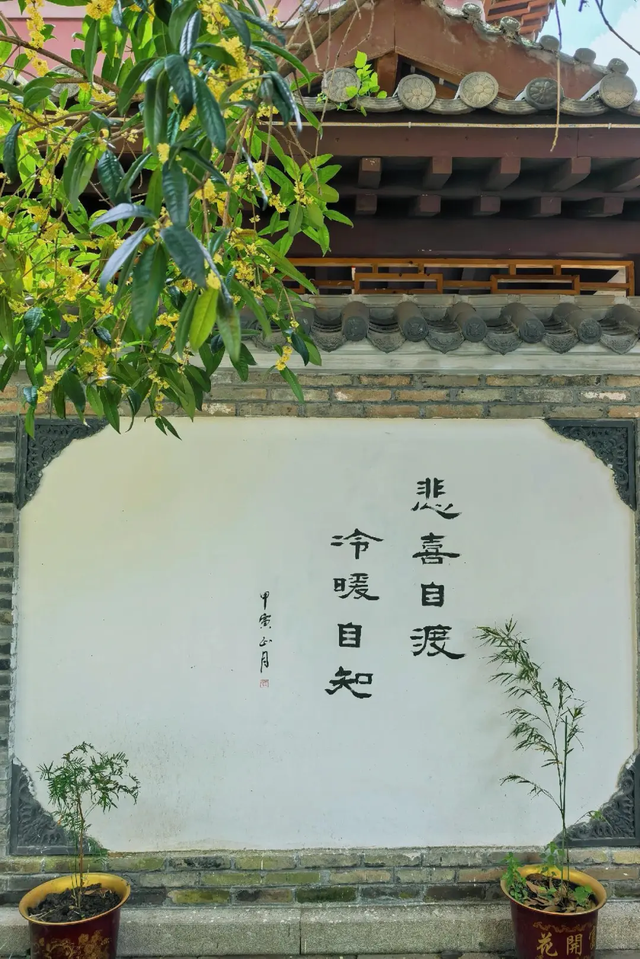 悲喜自渡
冷暖自知
甲寅正月
花開